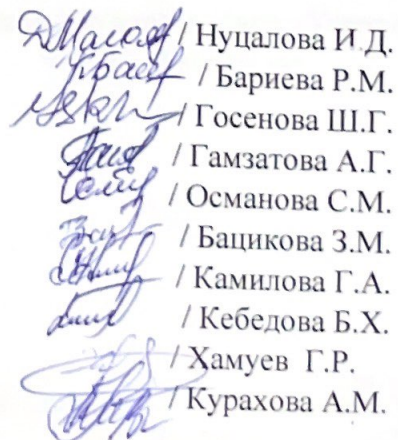 / Нуцалова И.Д.
/ Бариева Р.М.
/ Госенова Ш.Г.
/ Гамзатова А.Г.
/ Османова С.М.
/ Бацикова З.М.
/ Камилова Г.А.
/ Кебедова Б.Х.
/ Хамуев Г.Р.
/ Курахова А.М.